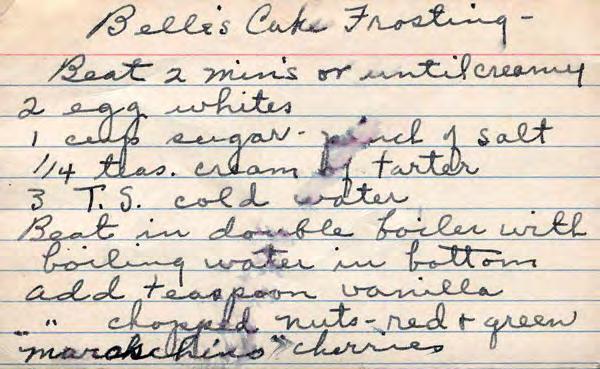 Belle's Cake Frosting -
Beat 2 min's or until creamy
2 egg whites
1 cup sugar - pinch of salt
1/4 teas. cream of tarter
3 T.S. cold water
Beat in double boiler with
boiling water in bottom
add teaspoon vanilla
" " chopped nuts - red + green
"maraschino" cherries